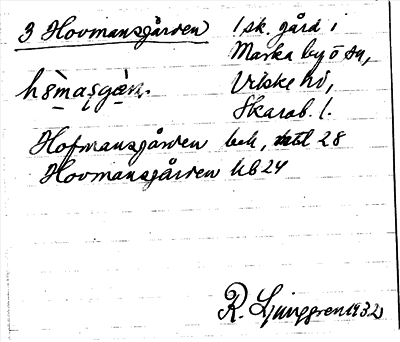 3 Hovmansgården
1 sk. gård i
Marka by ö sn,
Vilske hd,
Skarab. l.
Hofmansgården bek, 28
Hovmansgården kb 24
R. Ljunggren 1932